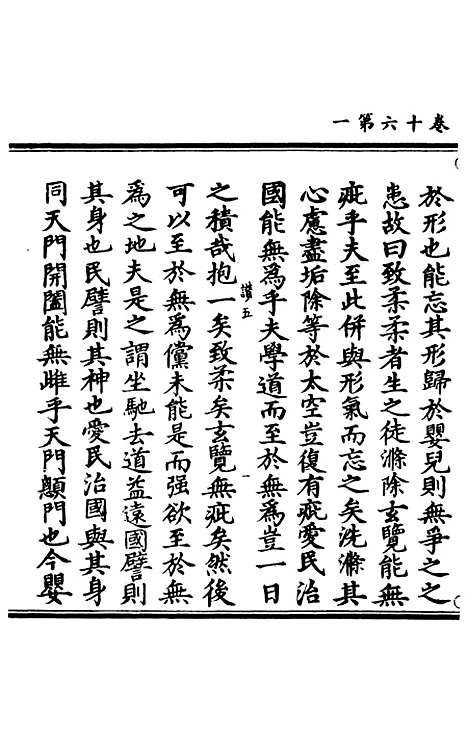 卷十六第一
於形也能忘其形歸於嬰兒則無爭之之
患故曰致柔柔者生之徒滌除玄覽能無
疵乎夫至此併與形氣而忘之矣洗滌其
心慮盡垢除等於太空豈復有疵愛民治
國能無為乎夫學道而至於無為豈一日
讃五 一
之積哉抱一矣致柔矣玄覽無疵矣然後
可以至於無為儻未能是而强欲至於無
為之地夫是之謂坐馳去道益遠國譬則
其身也民譬則其神也愛民治國與其身
同天門開闔能無雌乎天門顖門也今嬰